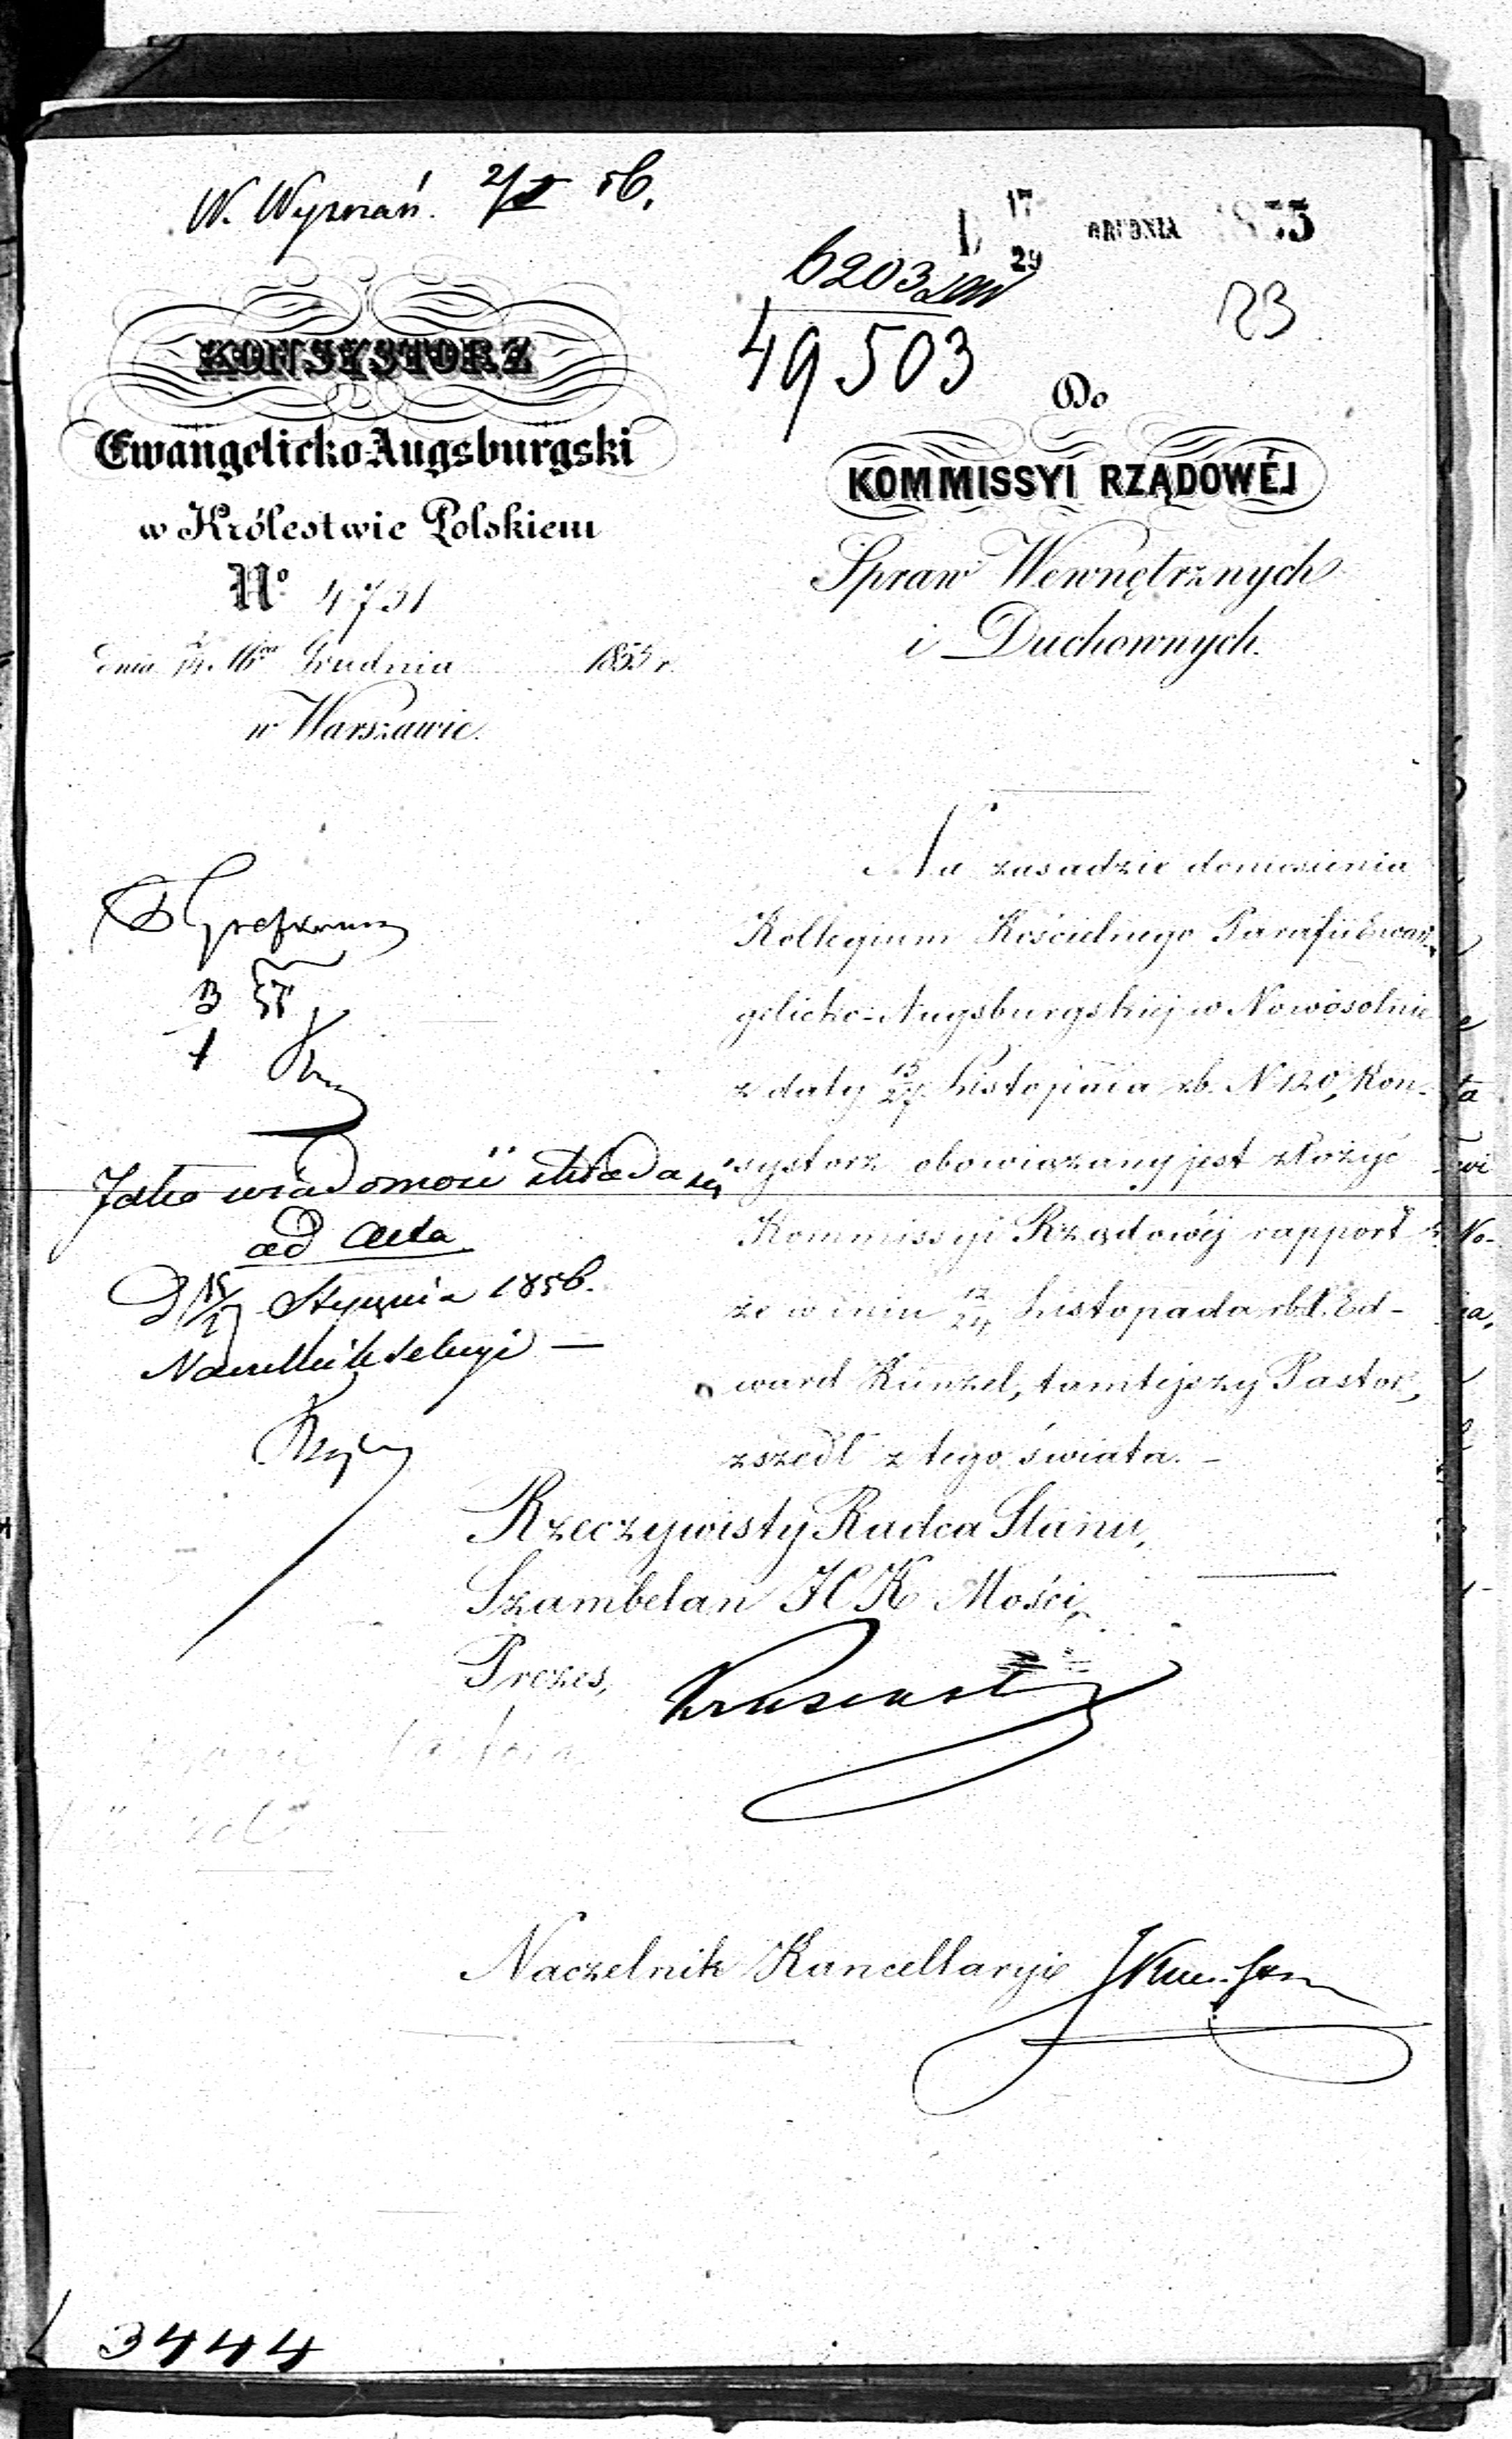 W. Wyznań. 2/I 56.
D 17/29 GRUDNIA 1855
6203
49503
23
KONSYSTORZ
Ewangelicko Augsburgski
w Królestwie Polskiem
No 4731
dnia 16go Grudnia 1855 r.
w Warszawie.
Do
KOMMISSYI RZĄDOWÉJ
Spraw Wewnętrznych
i Duchownych.
Na zasadzie doniesienia
Kollegium Kościelnego Parafii Ewan-
gelicko-Augsburgskiej w Nowosolnie
z daty 15/27 Listopada rb. N 120, Kon-
systorz obowiązany jest złożyć
Kommissyi Rządowéj rapport
że w dniu 12/24 Listopada rb. X. Ed-
ward Künzel, tamtejszy Pastor,
zszedł z tego świata. –
Rzeczywisty Radca Stanu,
Szambelan JCK Mości,
Prezes,
Naczelnik Kancellaryi
B
1
Jako wiadomość składa się
ad acta
D 15/27 Stycznia 1856.
Naczelnik Sekcyi —
Pastora
3444